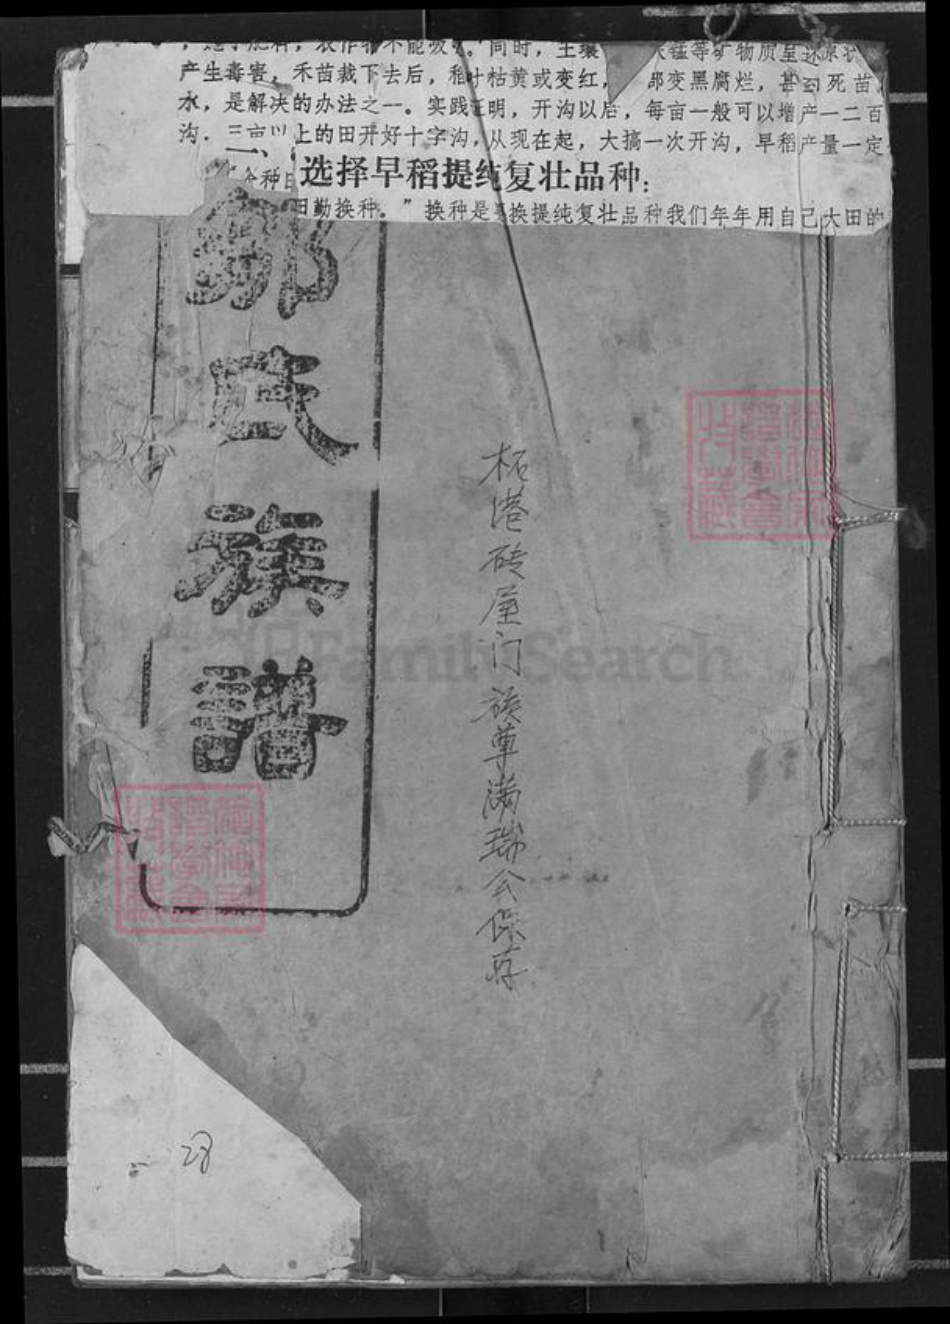 产生毒害，禾苗栽下去后，稻叶枯黄或变红，部变黑腐烂，甚至死苗
水，是解决的办法之一。实践证明，开沟以后，每亩一般可以增产一二百
沟．三亩以上的田开好十字沟，从现在起，大搞一次开沟，早稻产量一定
二、选择早稻提纯复壮品种：
田勤换种。”换种是要换提纯复壮品种我们年年用自己大田的
鄒氏族譜
柘港砖屋门族尊满瑞公保存
28
FamilySearch